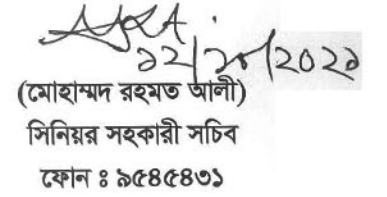 ১২/১০/২০২১
(মোহাম্মদ রহমত আলী)
সিনিয়র সহকারী সচিব
ফোন ঃ ৯৫৪৫৪৩১